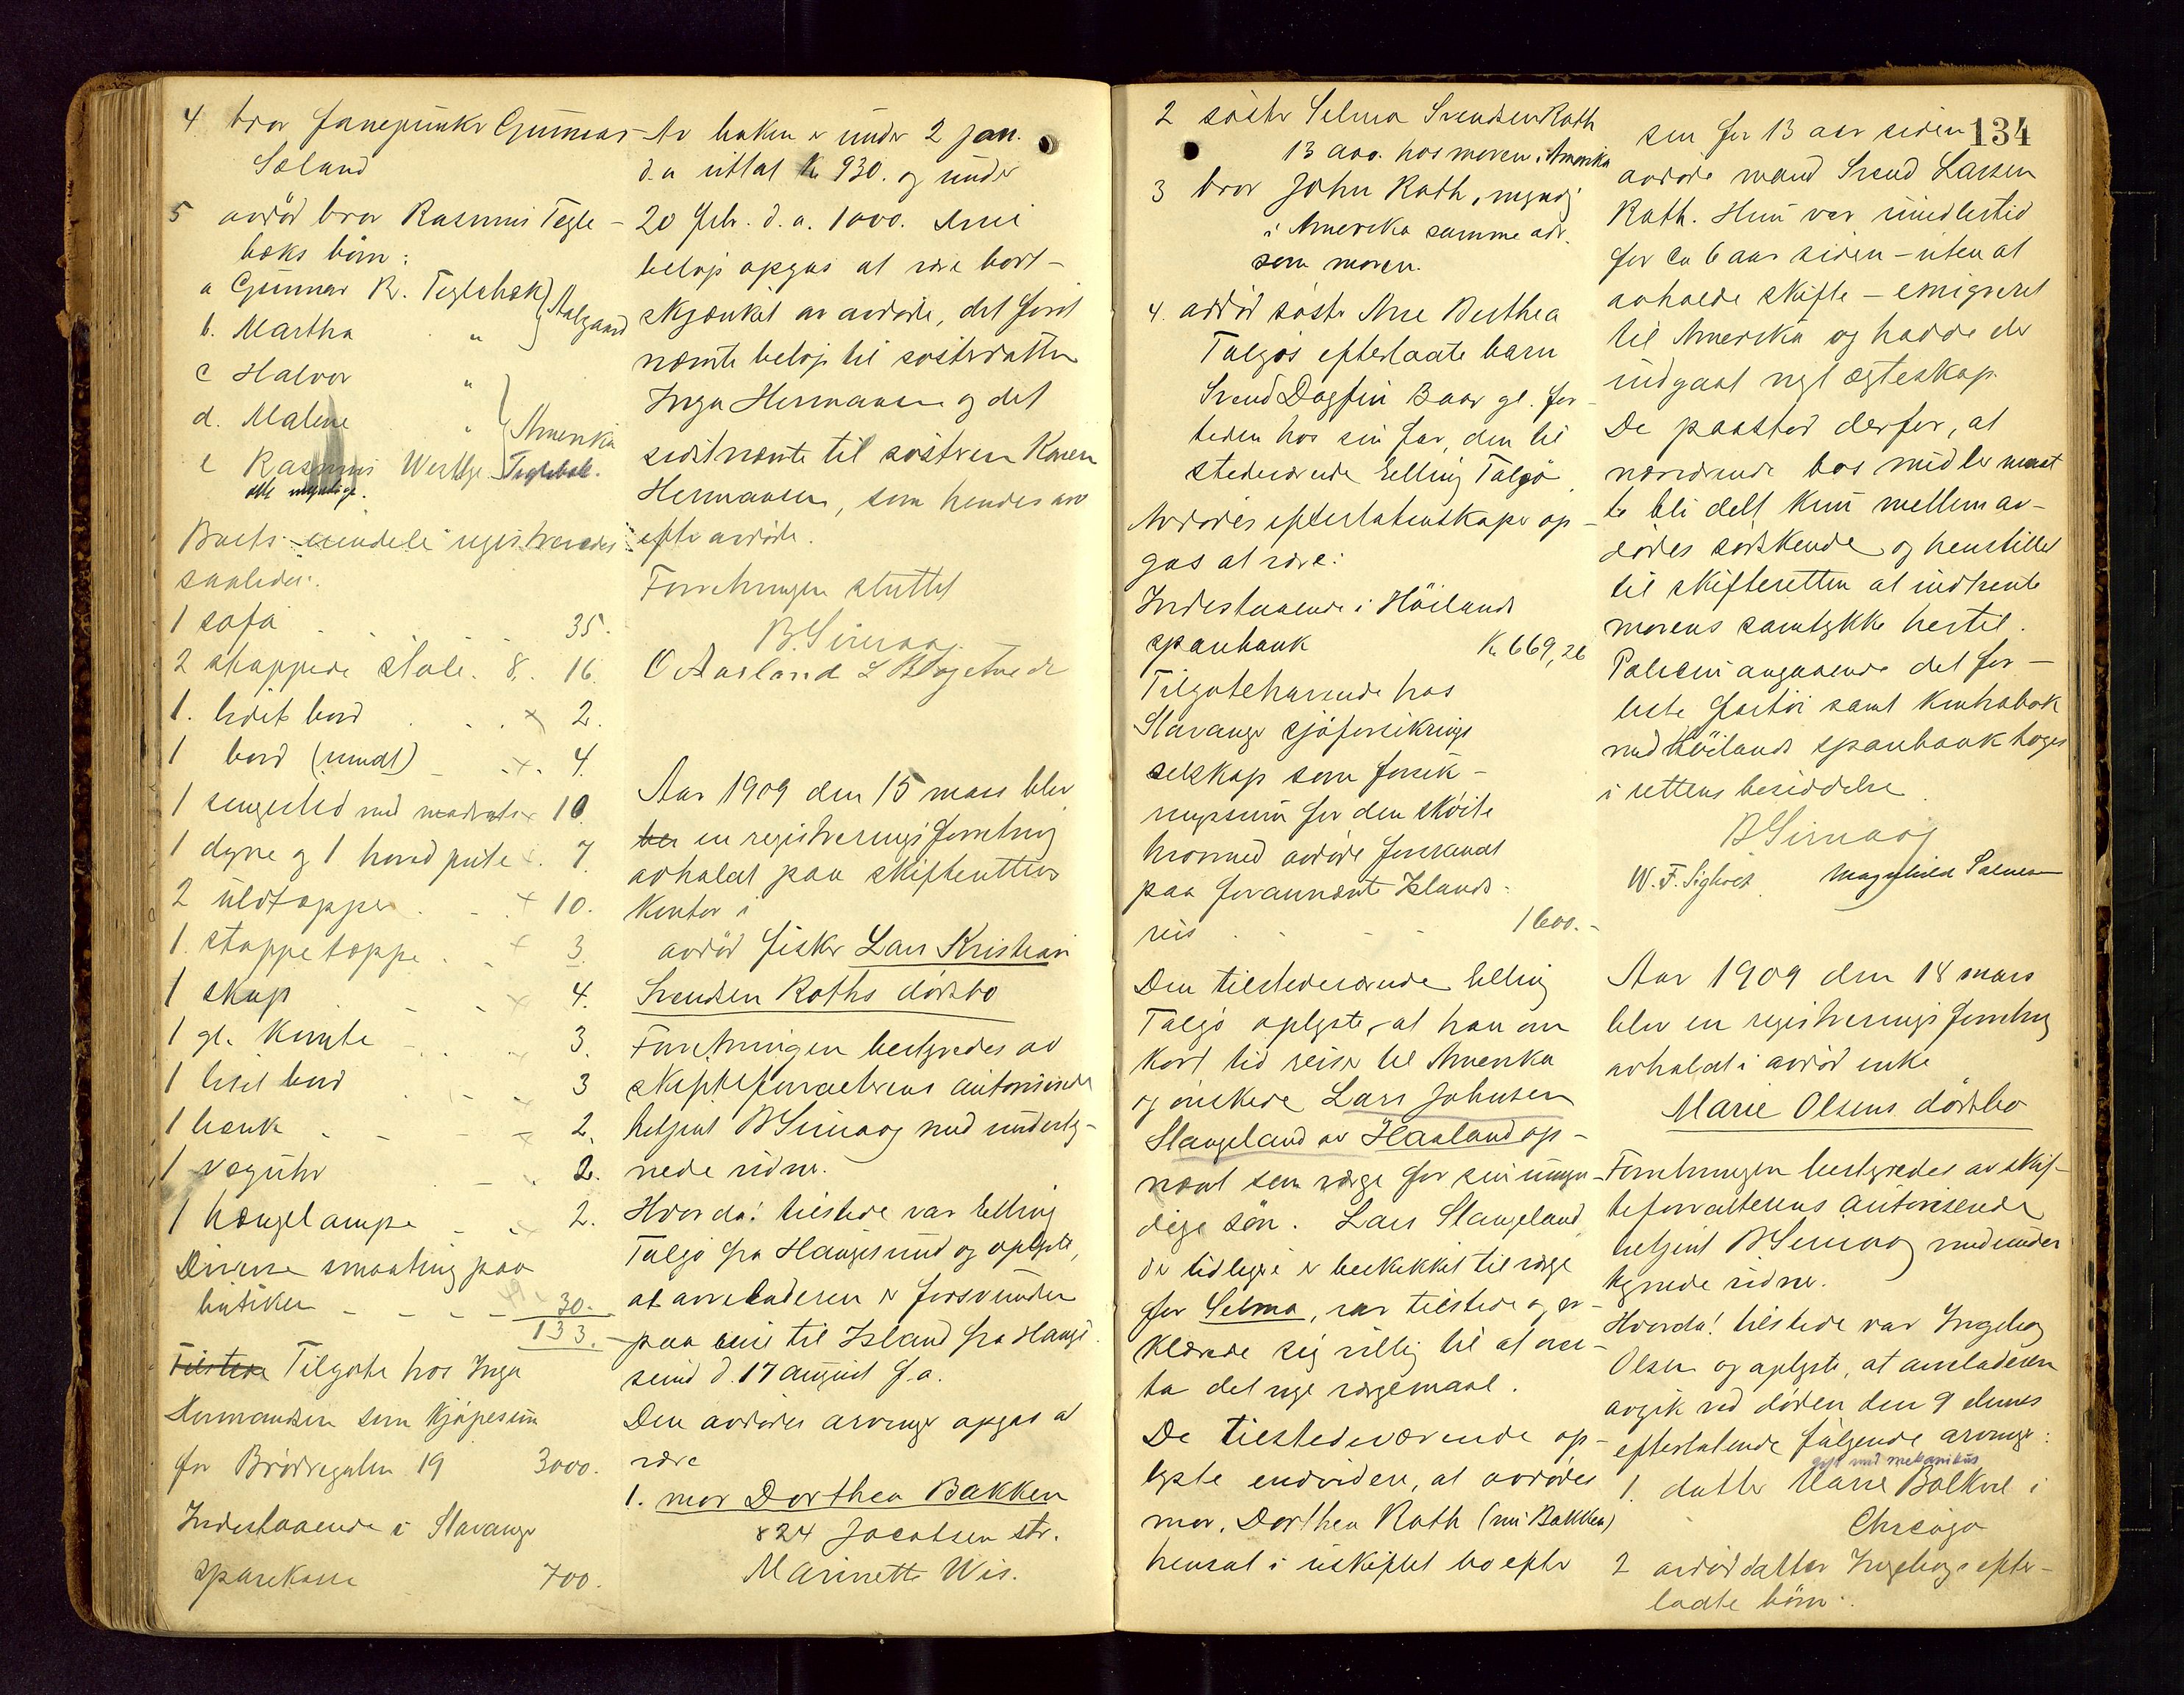 4 bror
Gunnar
Søland
5 avdød bror Rasmus Tegle-
bæks børn:
a Gunnar R. Teglebæk
b. Martha " Aalgaard
c Halvor "
d. Malene " Amerika
e Rasmus Teglebæk.
alle myndige.
Boets eiendele registreredes
saaledes:
1 sofa 35.
2 stoppede stole. 8. 16.
1. lidet bord 2.
1 bord (rundt) 4.
1 sengested med madrats 10.
1 dyne og 1 hovedpute 7.
2 uldtæpper 10.
1. stoppetæppe 3.
1 skap 4.
1 gl. kiste 3.
1 litet bord 3
1 bænk 2.
1 væguhr 2.
1 hængelampe 2.
Diverse smaating paa
butiken 30.
133.-
Tilstede Tilgode hos Inga
Hermansen som kjøpesum
for Brødregaten 19 3000.
Indestaaende i Stavanger
sparekasse 700.
Av boken er under 2 jan.
d.a. uttat kr 930. og under
20 febr. d.a. 1000. Disse
beløp opgis at være bort-
skjænket av avdøde, det først
nævnte beløp til søsterdatter
Inga Hermansen og det
sidstnævnte til søsteren Karen
Hermansen, som hendes arv
efter avdøde.
Forretningen sluttet
B. Simaag
O Aasland
Aar 1909 den 15 mars blev
her en registreringsforretning
avholdt paa skifterettens
kontor i
avdød fisker Lars Kristian
Svendsen Raths dødsbo
Forretningen bestyredes av
skifteforvalterens autoriserede
betjent B Simaag med underteg-
nede vidner.
Hvorda! tilstede var Elling
Talgø fra Haugesund og oplyste,
at arveladeren er forsvunden
paa reise til Island fra Hauge-
sund d. 17 august f.a.
Den avdødes arvinger opgis at
være
1. mor Dorthea Bakken
824 Jacobsen str.
Marinette Wis.
134
2 søster Selma Svendsen Rath
13 aar. hos moren i Amerika
3 bror John Rath, myndig
i Amerika samme adr.
som moren.
4. avdød søster Ane Berthea
Talgøs efterladte barn
Svend Dagfin 3 aar gl. for
tiden hos sin far, den til
stedeværende Elling Talgø.
Avdødes efterladenskaper op-
gis at være:
Indestaaende i Høilands
sparebank Kr. 669,26
Tilgodehavende hos
Stavanger sjøforsikrings
selskap som forsik-
ringssum for den skøite
hvormed avdøde forsvandt
paa forannævnte Islands-
reis 1600.-
Den tilstedeværende Elling
Talgø oplyste, at han om
kort tid reiser til Amerika
og ønskede Lars Johnsen
Stangeland av Haaland op-
nævnt som værge for sin umyn-
dige søn. Lars Stangeland,
der tidligere er beskikket til værge
for Selma, var tilstede og er-
klærede sig villig til at over-
ta det nye værgemaal.
De tilstedeværende op-
lyste endvidere, at avdødes
mor, Dorthea Rath (nu Bakken)
hensat i uskiftet bo efter
sin for 13 aar siden
avdøde mand Svend Larsen
Rath. Hun var imidlertid
for ca 6 aar siden - uten at
avholde skifte - emigreret
til Amerika og havde der
indgaat nyt egteskap.
De paastod derfor, at
nærværende bos midler maat
te bli delt kun mellem av-
dødes søskende og henstillet
til skifteretten at indhente
morens samtykke hertil.
Policen angaaende det for-
liste fartøi samt kontrabok
med Høilands sparebank toges
i rettens besiddelse
B Simaag
Aar 1909 den 18 mars
blev en registreringsforretning
avholdt i avdød enke
Marie Olsens dødsbo
Forretningen bestyredes av skif-
teforvalterens autoriserede
betjent B Simaag med under
tegnede vidner.
Hvorda! tilstede var Ingeborg
Olsen og oplyste, at arveladeren
avgik ved døden den 9 dennes
efterlatende følgende arvinger:
gift med mekanikus
1. datter Marie i
Chicago
2 avdød datter Ingeborgs efter-
ladte børn: